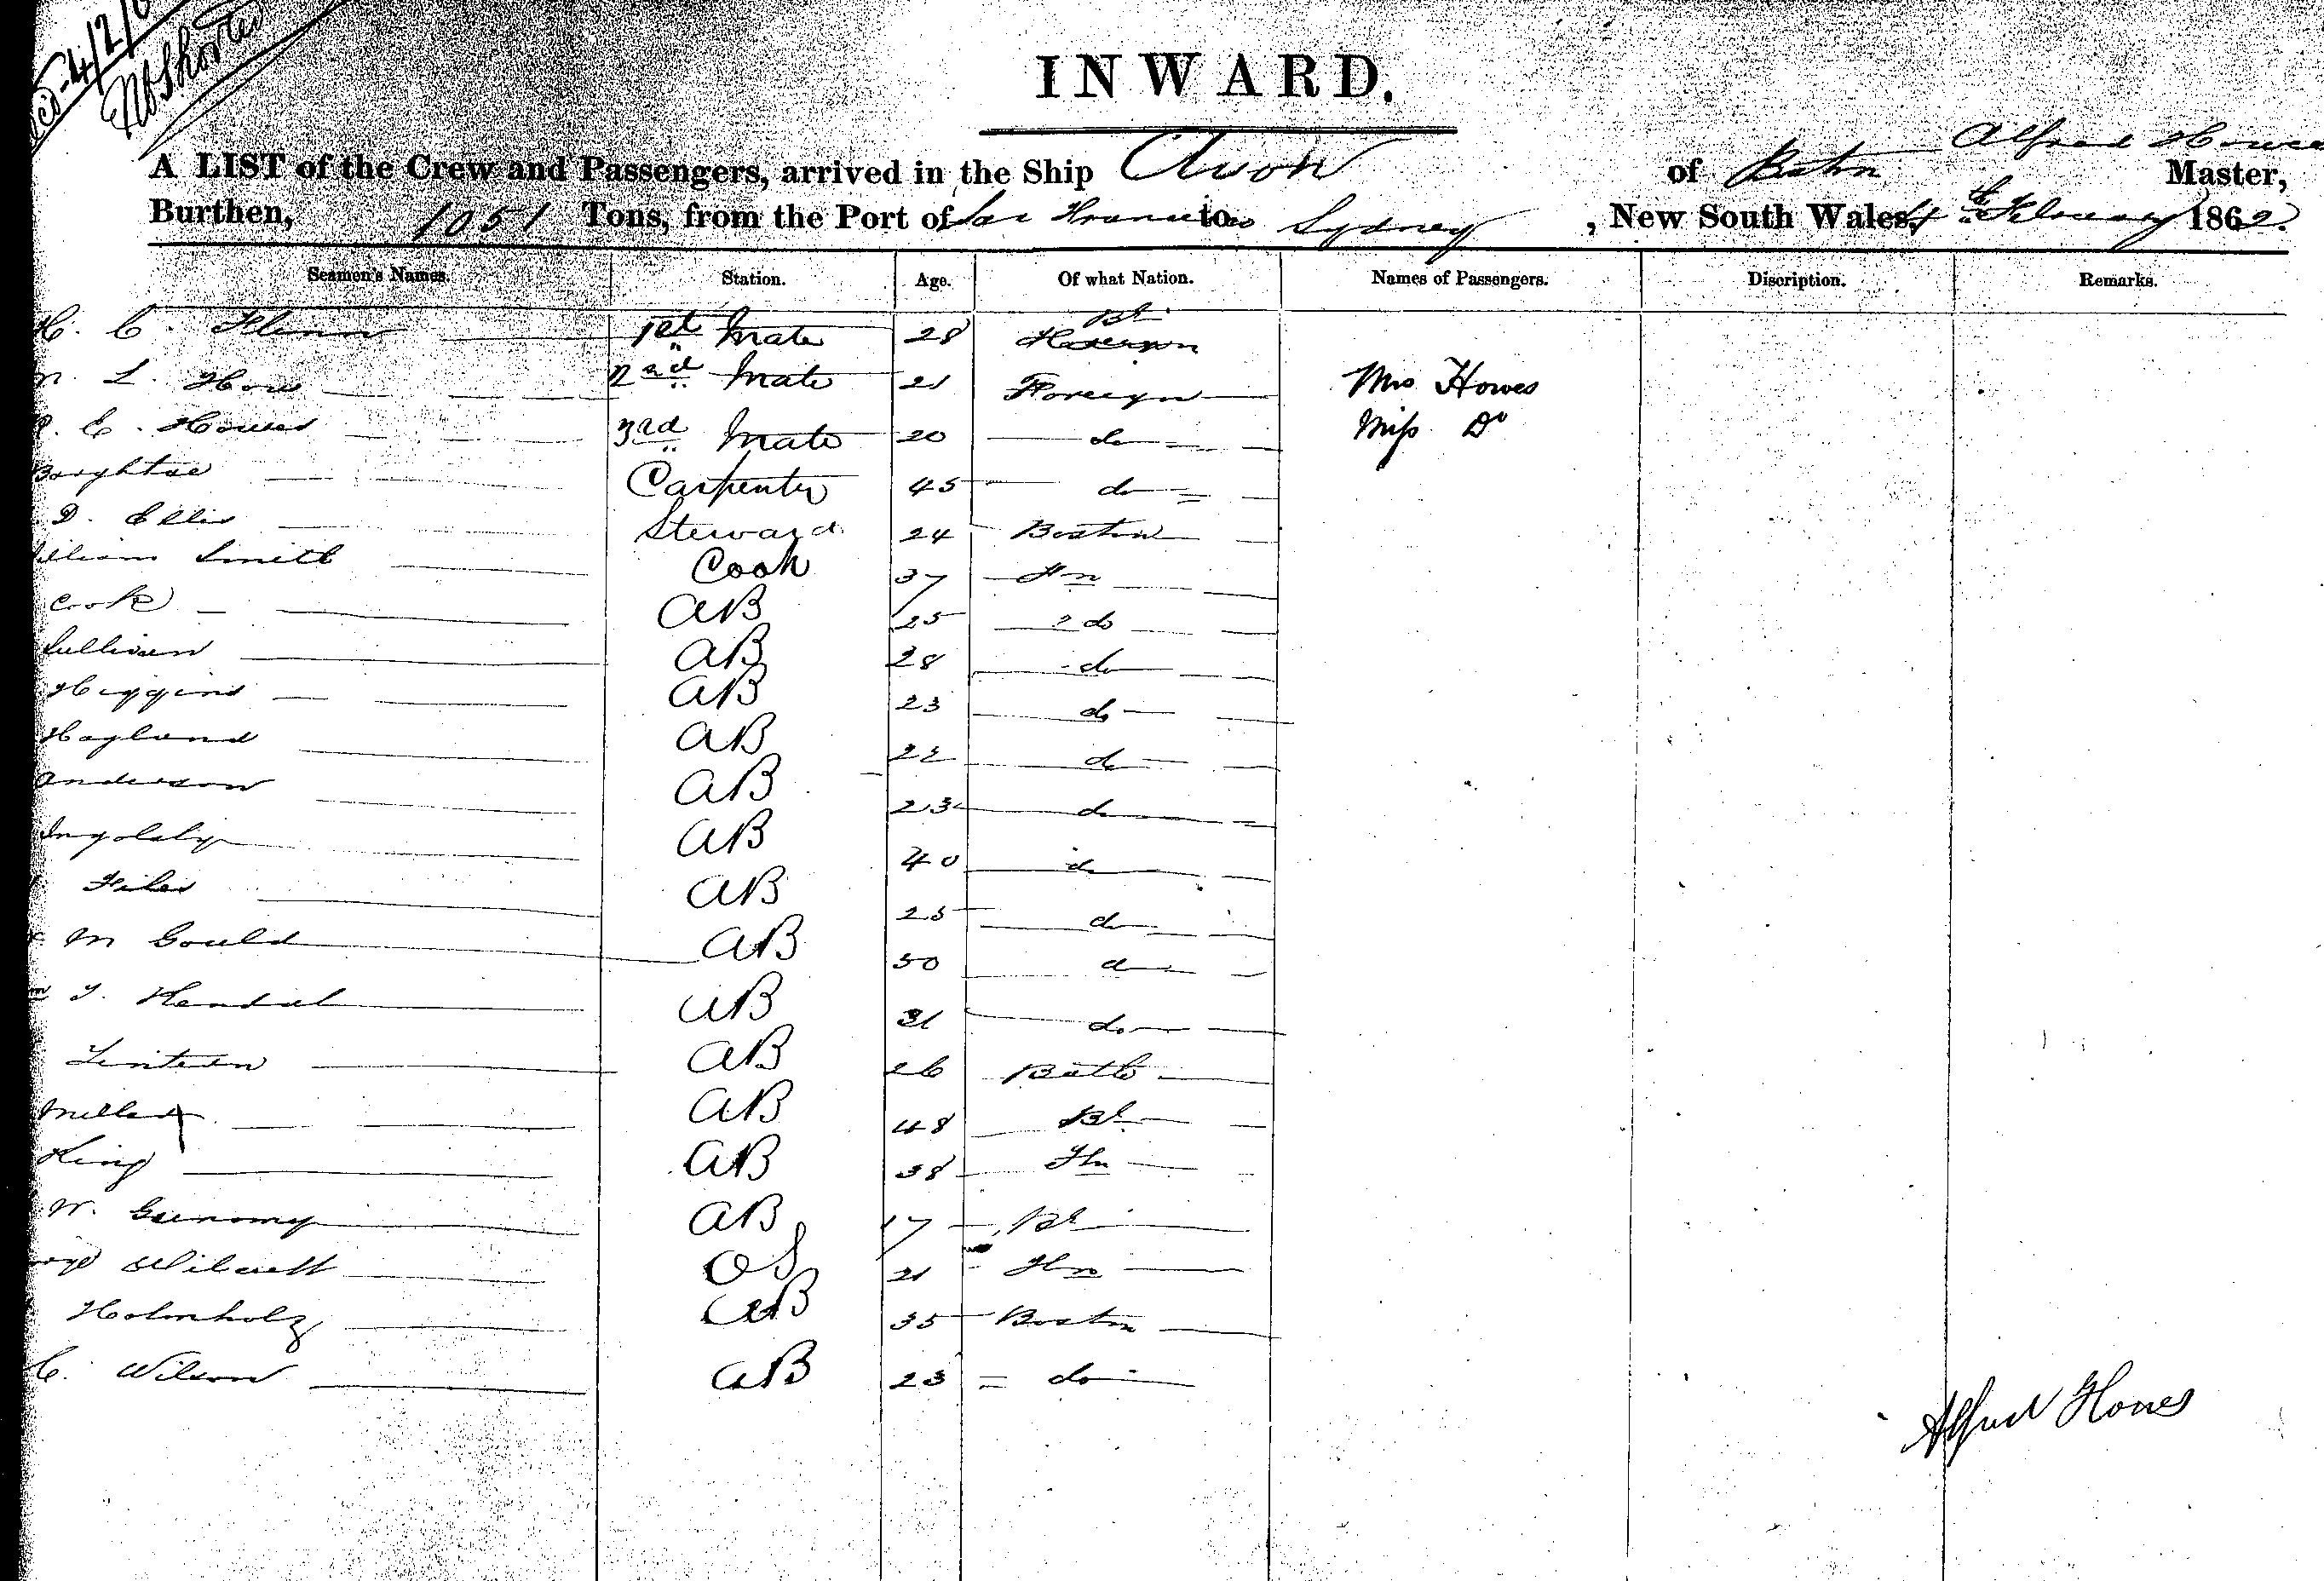 INWARD.
A LIST of the Crew and Passengers, arrived in the Ship Avon of Boston Alfred Howes Master,
Burthen, 1051 Tons, from the Port of San Francisco to Sydney, New South Wales, 4th February 1862.
Seamen's Names. Station. Age. Of what Nation. Names of Passengers. Discription. Remarks.
H. C. 1st Mate 28 Br
L. Howes 2nd Mate 21 Foreign Mrs Howes
E. Howes 3rd Mate 20 do Miss Do
Carpenter 45 do
D. Ellis Steward 24 Boston
William Smith Cook 37 Fn
Cook AB 25 do
Sullivan AB 28 do
Higgins AB 23 do
Haglund AB 22 do
Anderson AB 23 do
Ingolsby AB 40 do
Files AB 25 do
M Gould AB 50 do
AB 31 do
AB 26
Miller AB 48 Br
King AB 38 Fn
W. AB 17 Br
OS 21 Fn
Holmholz AB 35 Boston
C. Wilson AB 23 do
Alfred Howes